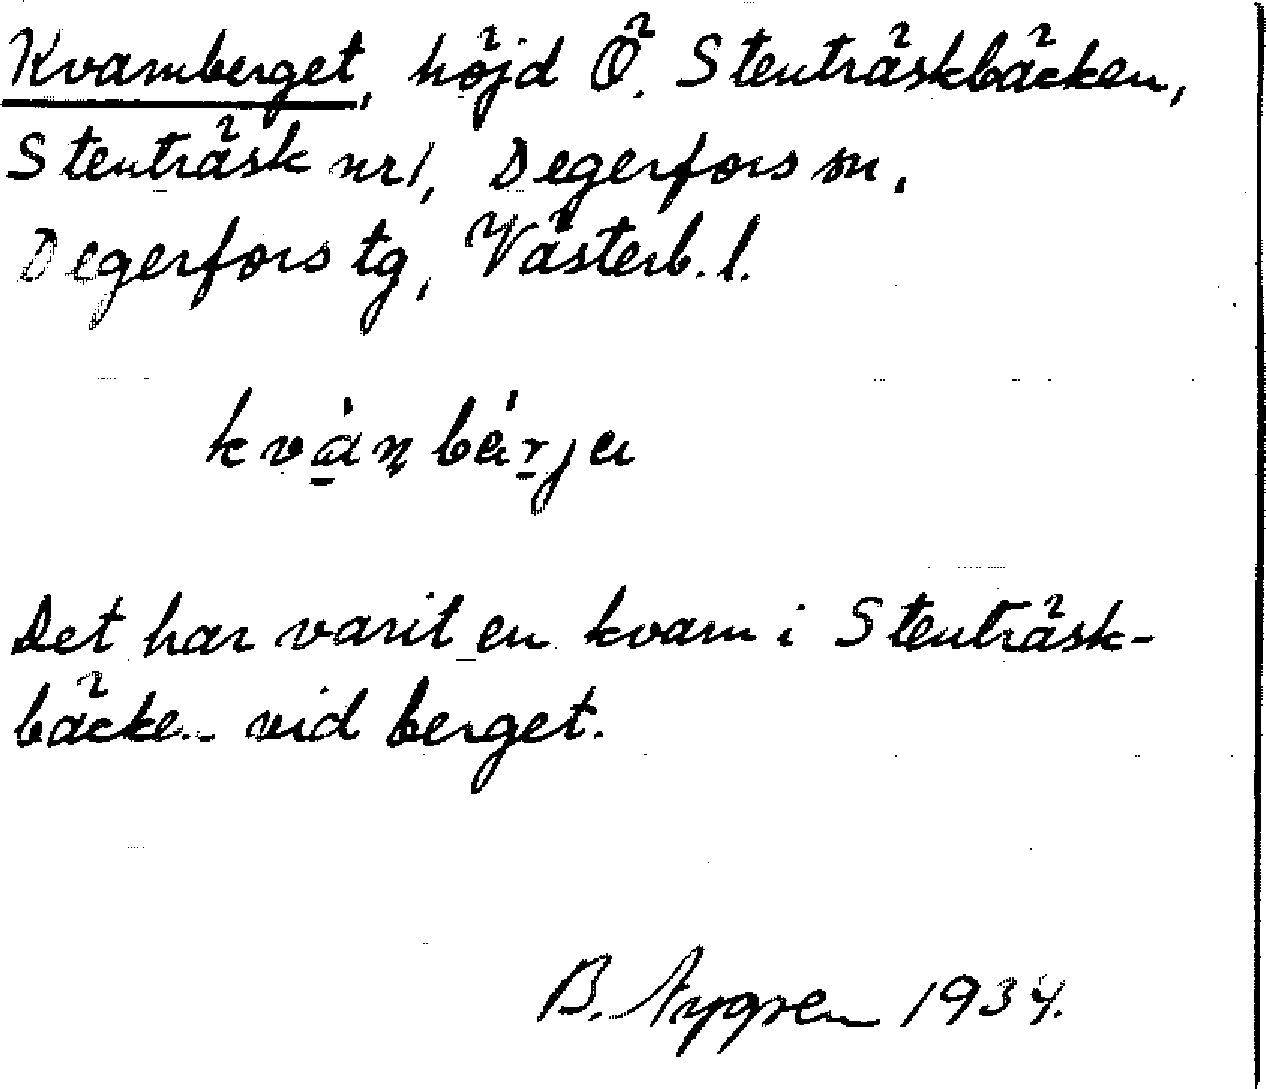 Kvarnberget, höjd Ö. Stenträskbäcken,
Stenträsk nr 1, Degerfors sn.
Degerfors tg, Västerb. l.
kvànbárja
Det har varit en kvarn i Stenträsk-
bäcken vid berget.
B. Nygren 1934.